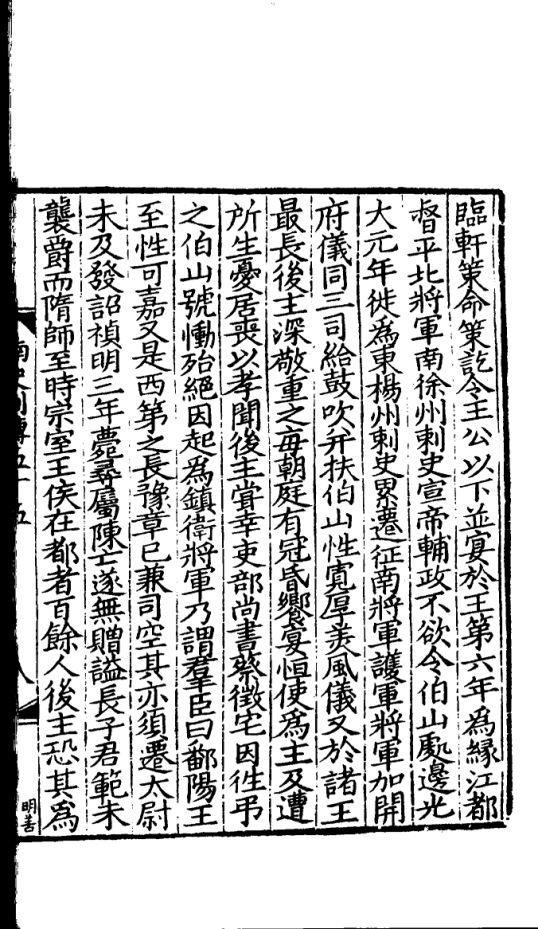 臨軒策命策訖令王公以下並宴於王第六年爲緣江都
督平北將軍南徐州刺史宣帝輔政不欲令伯山處邊光
大元年徙爲東楊州刺史累遷征南將軍護軍將軍加開
府儀同三司給鼓吹并扶伯山性寬厚美風儀又於諸王
最長後主深敬重之毎朝庭有冠昏饗宴恒使爲主及遭
所生憂居喪以孝聞後主甞幸吏部尚書蔡徵宅因徃弔
之伯山號慟殆絕因起爲鎮衛將軍乃謂羣臣曰鄱陽王
至性可嘉又是西第之長豫章已兼司空其亦須遷太尉
未及發詔禎明三年薨尋屬陳亡遂無贈謚長子君範未
襲爵而隋師至時宗室王侯在都者百餘人後主恐其爲
南史列傳五十五
八
明善